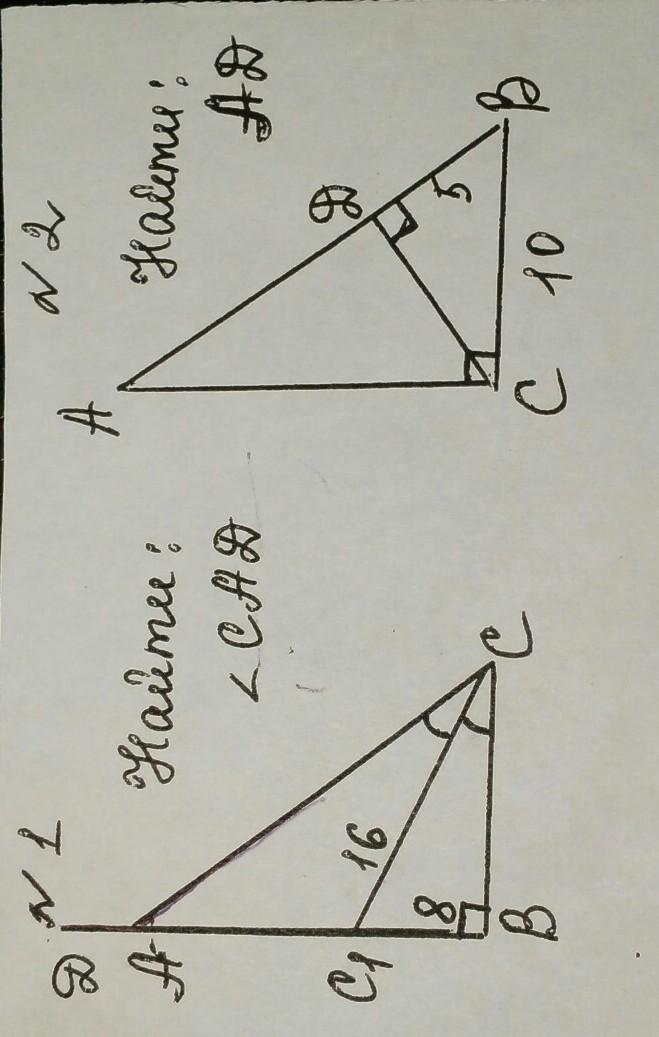 N 1
Найти:
∠CAD
D
A
C1
B
C
16
8
N 2
Найти:
AD
A
D
B
C
5
10